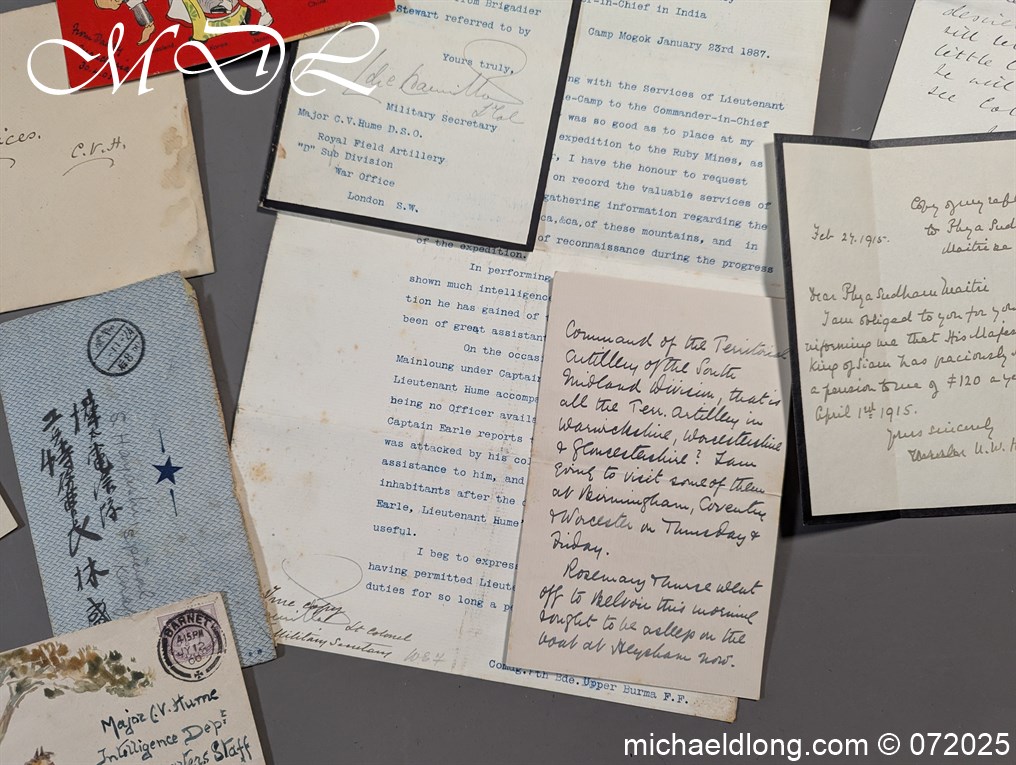 MDL
ices.
C.V.H.
from Brigadier
Stewart referred to by
Yours truly,
Military Secretary
Major C.V.Hume D.S.O.
Royal Field Artillery
"D" Sub Division
War Office
London S.W.
er-in-Chief in India
Camp Mogok January 23rd 1887.
ng with the Services of Lieutenant
e-Camp to the Commander-in-Chief
was so good as to place at my
expedition to the Ruby Mines, as
, I have the honour to request
on record the valuable services of
gathering information regarding the
ca.&ca.of these mountains, and in
of reconnaissance during the progress
of the expedition.
In performing
shown much intelligence
tion he has gained of
been of great assistan
On the occasi
Mainloung under Captain
Lieutenant Hume accompa
being no Officer availa
Captain Earle reports
was attacked by his col
assistance to him, and
inhabitants after the
Earle, Lieutenant Hume'
useful.
I beg to express
having permitted Lieute
duties for so long a pe
True copy
Lt Colonel
Military Secretary
Comdg. 7th Bde. Upper Burma F.F.
Command of the Territorial
Artillery of the South
Midland Division, that is
all the Terr. Artillery in
Warwickshire, Worcestershire
& Gloucestershire? I am
going to visit some of them
at Birmingham, Coventry
& Worcester on Thursday &
Friday.
Rosemary & nurse went
off to Belvoir this morning
& ought to be asleep on the
boat at Heysham now.
little
he will
see
Copy of my reply
to Phya Sudham
Maitri
Feb 27. 1915.
Dear Phya Sudham Maitri
I am obliged to you for you
informing me that His Majes
King of Siam has graciously
a pension to me of £120 a ye
April 1st 1915.
Yours sincerely
BARNET
4.15PM
Major C.V. Hume
Intelligence Dept
rters Staff
michaeldlong.com © 072025